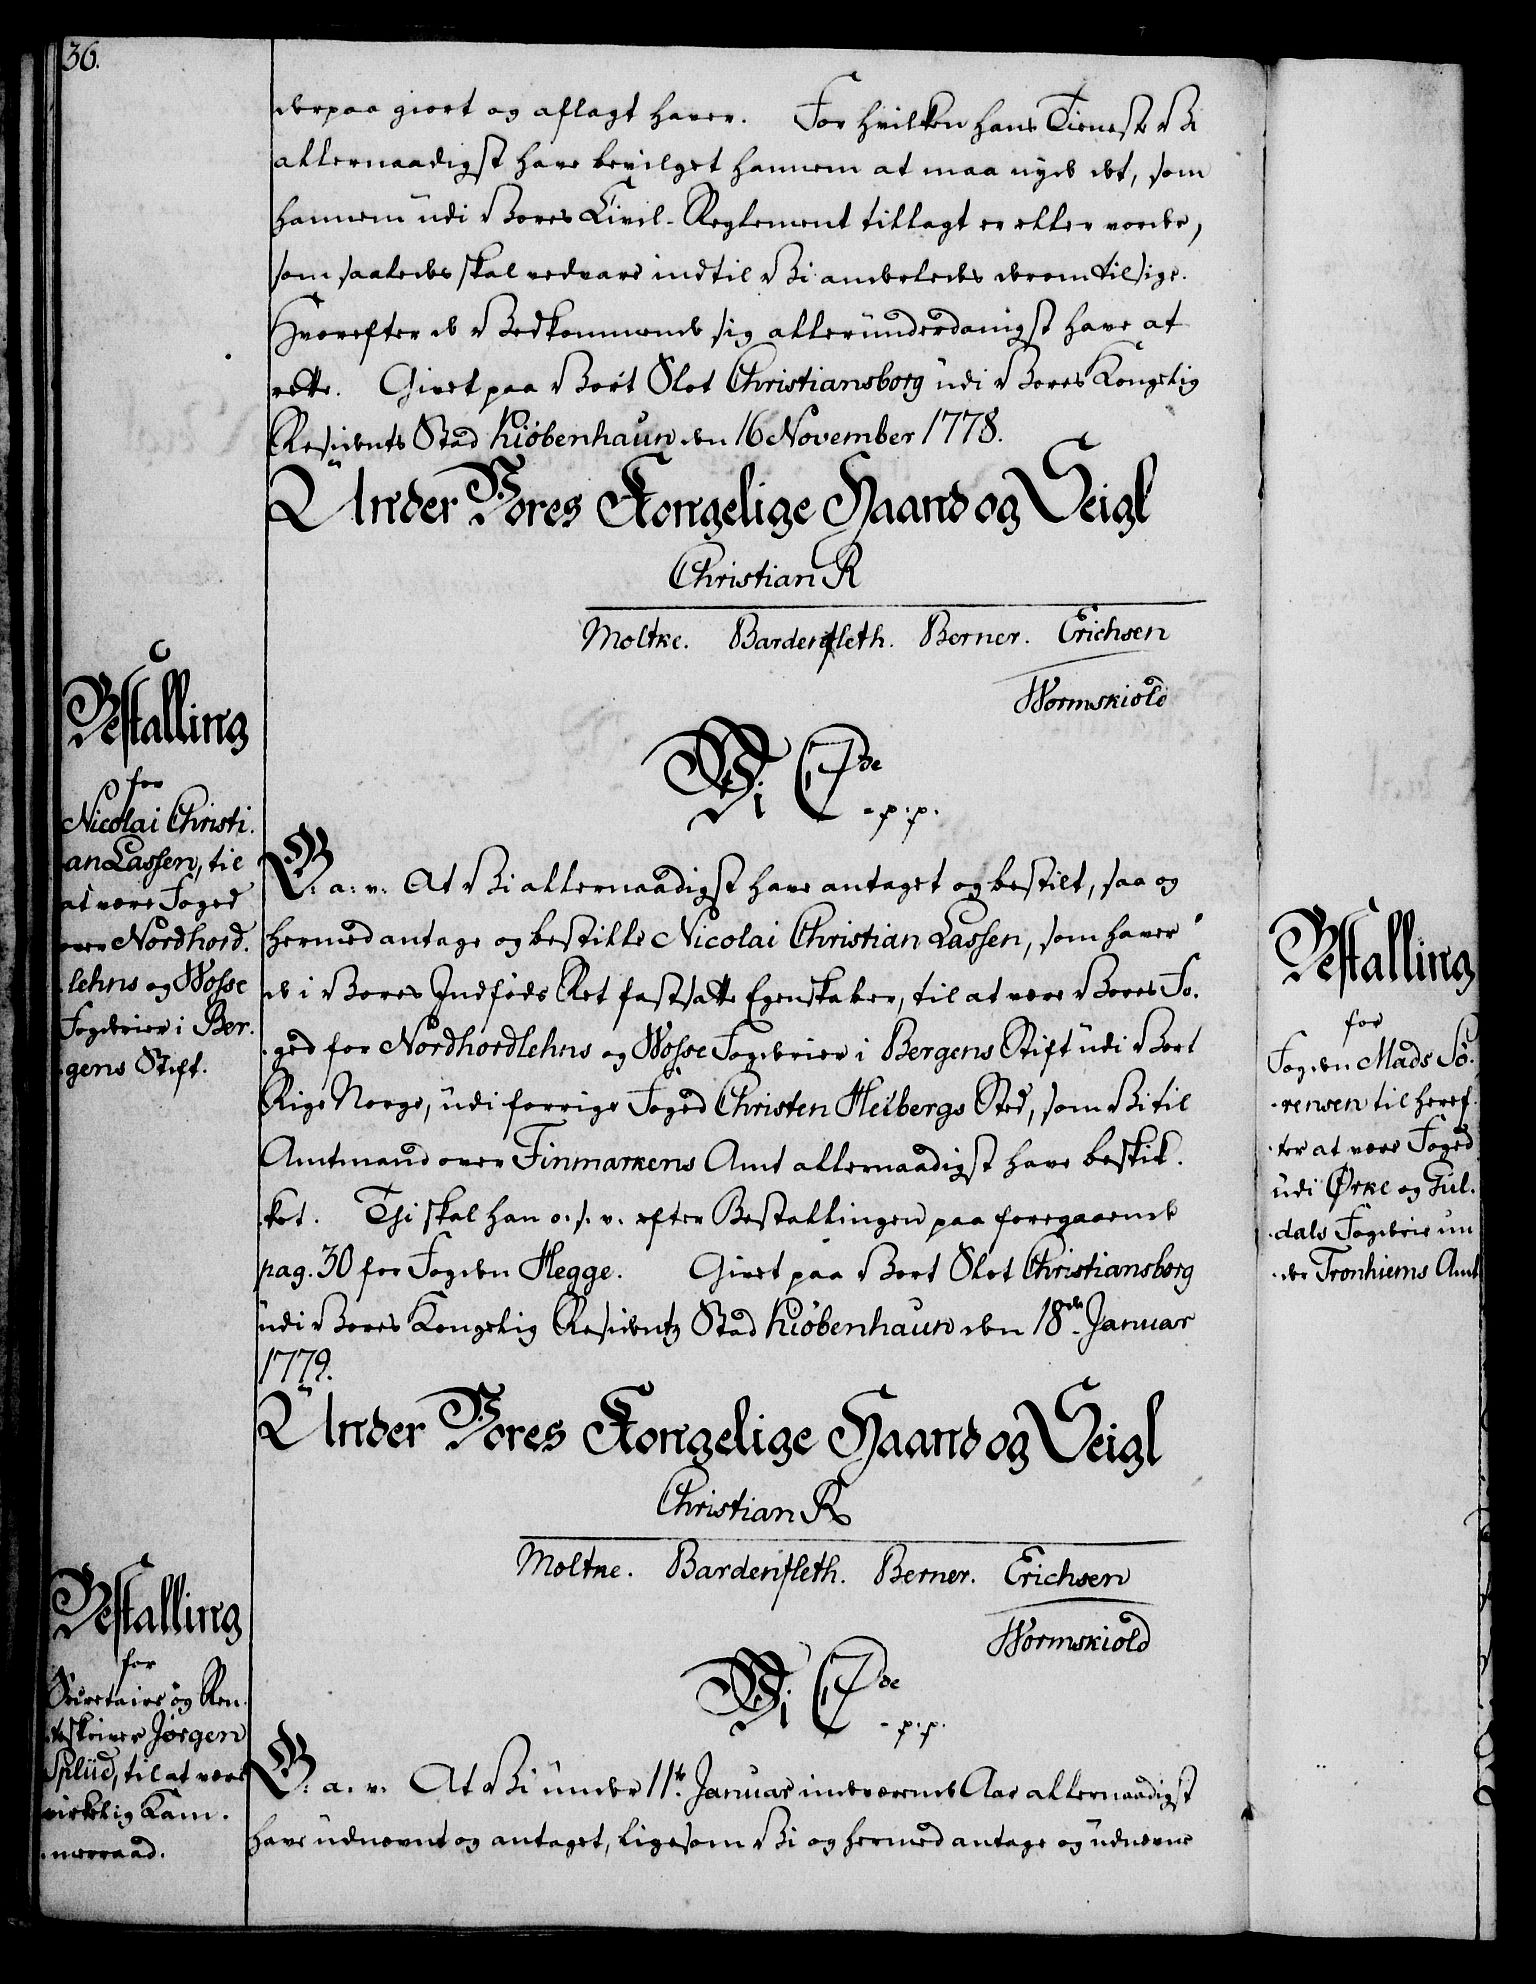 36.
derpaa giort og aflagt haver. For hvilken hans Tieneste Vi
allernaadigst have bevilget hannem at maa nyde det, som
hannem udi Vores Civil-Reglement tillagt er eller vorder,
som saaledes skal vedvare indtil Vi anderledes derom tilsige.
Hvorefter de Vedkommende sig allerunderdanigst have at
rette. Givet paa Vort Slot Christiansborg udi Vores Kongelig
Residents Stad Kiøbenhaun den 16 November 1778.
Under Vores Kongelige Haand og Seigl
Christian R
Moltke. Bardenfleth. Berner. Erichsen
Wormskiold
Bestalling
for
Nicolai Christi-
an Lassen, til
at være Foged
over Nordhord-
lehns og Wosse
Fogderier i Ber-
gens Stift.
Vi C 7de
-p:p.
G: a: v: At Vi allernaadigst have antaget og bestilt, saa og
hermed antage og bestille Nicolai Christian Lassen, som haver
de i Vores Indføds Ret fastsatte Egenskaber, til at være Vores Fo-
ged for Nordhordlehns og Wosse Fogderier i Bergens Stift udi Vort
Rige Norge, udi forrige Foged Christen Heibergs Sted, som Vi til
Amtmand over Finmarkens Amt allernaadigst have beskik-
ket. Thi skal han o. s. v. efter Bestallingen paa foregaaende
pag. 30 for Fogden Hegge. Givet paa Vort Slot Christiansborg
udi Vores Kongelig Residentz Stad Kiøbenhaun den 18de Januar
1779.
Under Vores Kongelige Haand og Seigl
Christian R
Moltke. Bardenfleth. Berner. Erichsen
Wormskiold
Bestalling
for
Secretaire og Ren-
teskriver Jørgen
Splüd, til at være
virkelig Kam-
merraad.
Vi C 7de
-p:p.
G: a: v. At Vi under 11te Januar indeværende Aar allernaadigst
have udnævnt og antaget, ligesom Vi og hermed antage og udnævne
Bestalling
for
Fogden Mads Sö-
rensen til heref-
ter at være Foged
udi Ørke og Gul-
dals Fogderie un-
der Tronhiems Amt